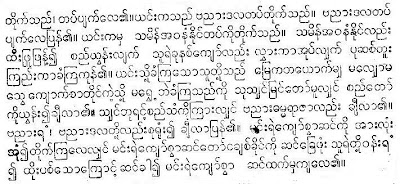 တိုက်သည်၊ တပ်ပျက်လေ၏။ယင်းကသည် ဗညားဒလတပ်တိုက်သည်။ ဗညားဒလတပ်
ပျက်လေပြန်၏။ ယင်းကမှ သမိန်အဝနံနိုင်တပ်ကိုတိုက်သည်။ သမိန်အဝနံနိုင်လည်း
ထီးဖြူဖြန့်၍ စည်ယွန်းလျက် သူရဲခုနစ်ကျော်လည်း လွှားကာအုပ်လျက် ပုဆစ်ပူး
ကြည်းကာခံကြကုန်၏။ ယင်းသို့ခံကြသောသူတို့သည် မြေကတယောက်မျှ မလျှောမ
သွေ ကျောက်စာတိုင်ကဲ့သို့ မရွေ့ဘဲခံကြသည်ကို သုသျှင်မြင်တော်မူလျှင် စည်တော်
ကိုယွန်း၍ချီလာ၏။ သျှင်ဘုရင့်စည်သံကိုကြားလျှင် ဗညားဓမ္မရာဇာလည်း ချီလာ၏။
ဗညားရံ၊ ဗညားဒလတို့လည်းစုရုံး၍ ချီလာပြန်၏။ မင်းရဲကျော်စွာဆင်ကို အားလုံး
အုံ၍တိုက်ကြလေလျှင် မင်းရဲကျော်စွာဆင်တော်ချစ်ခိုင်ကို ဆင်ခြေဖြုံး သူရဲတို့ဝန်းရံ
၍ ထိုးပစ်သောကြောင့် ဆင်ခါ၍ မင်းရဲကျော်စွာ ဆင်ထက်မှကျလေ၏။